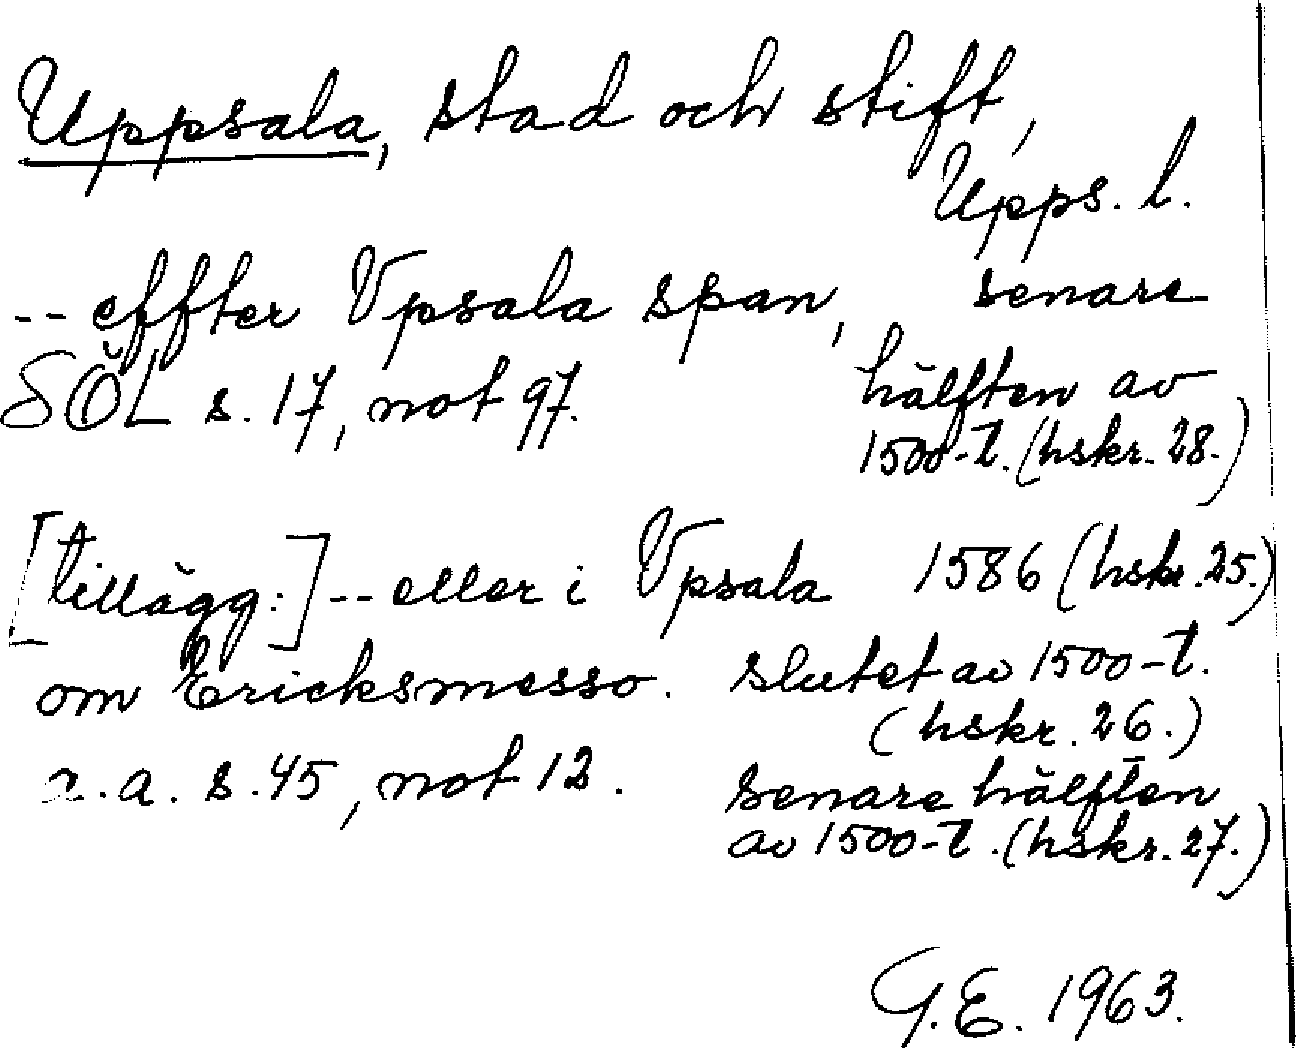 Uppsala, stad och stift,
Upps. l.
-- effter Vpsala span, senare
SÖL s. 17, not 97. hälften av
1500-t. (hskr. 28.)
[tillägg:] -- eller i Vpsala 1586 (hskr. 25.)
om Ericksmesso. slutet av 1500-t.
(hskr. 26.)
a.a. s. 45, not 12. senare hälften
av 1500-t. (hskr. 27.)
G.E. 1963.